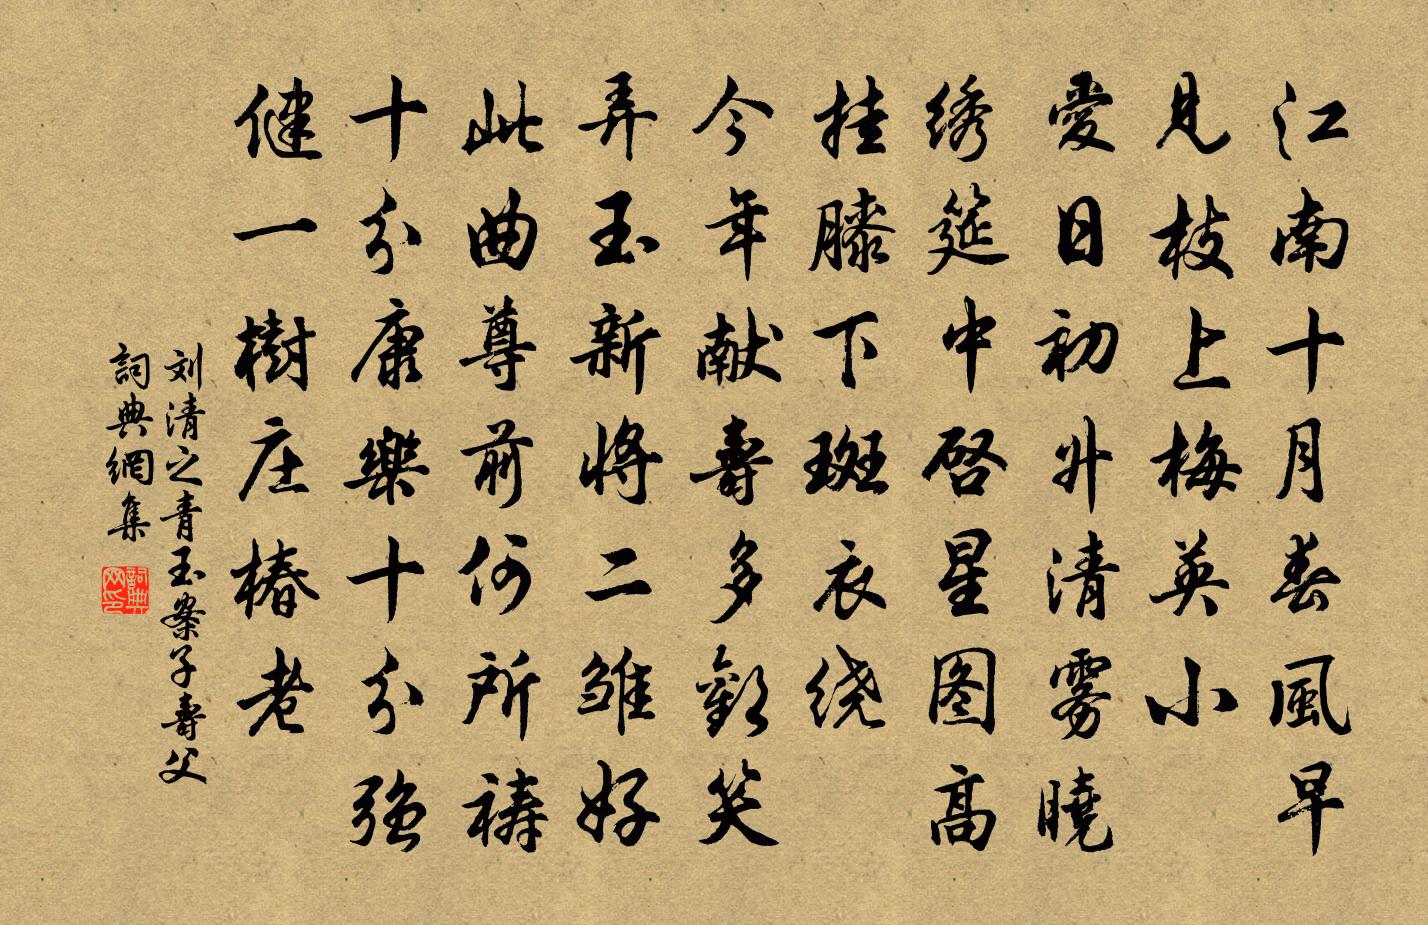 江南十月春風早
見枝上梅英小
愛日初升清雾曉
绣筵中啓星图高
挂膝下斑衣绕
今年献壽多歡笑
弄玉新將二雏好
此曲尊前何所祷
十分康樂十分强
健一樹庄椿老
刘清之青玉案子壽父
詞典網集
詞典网印